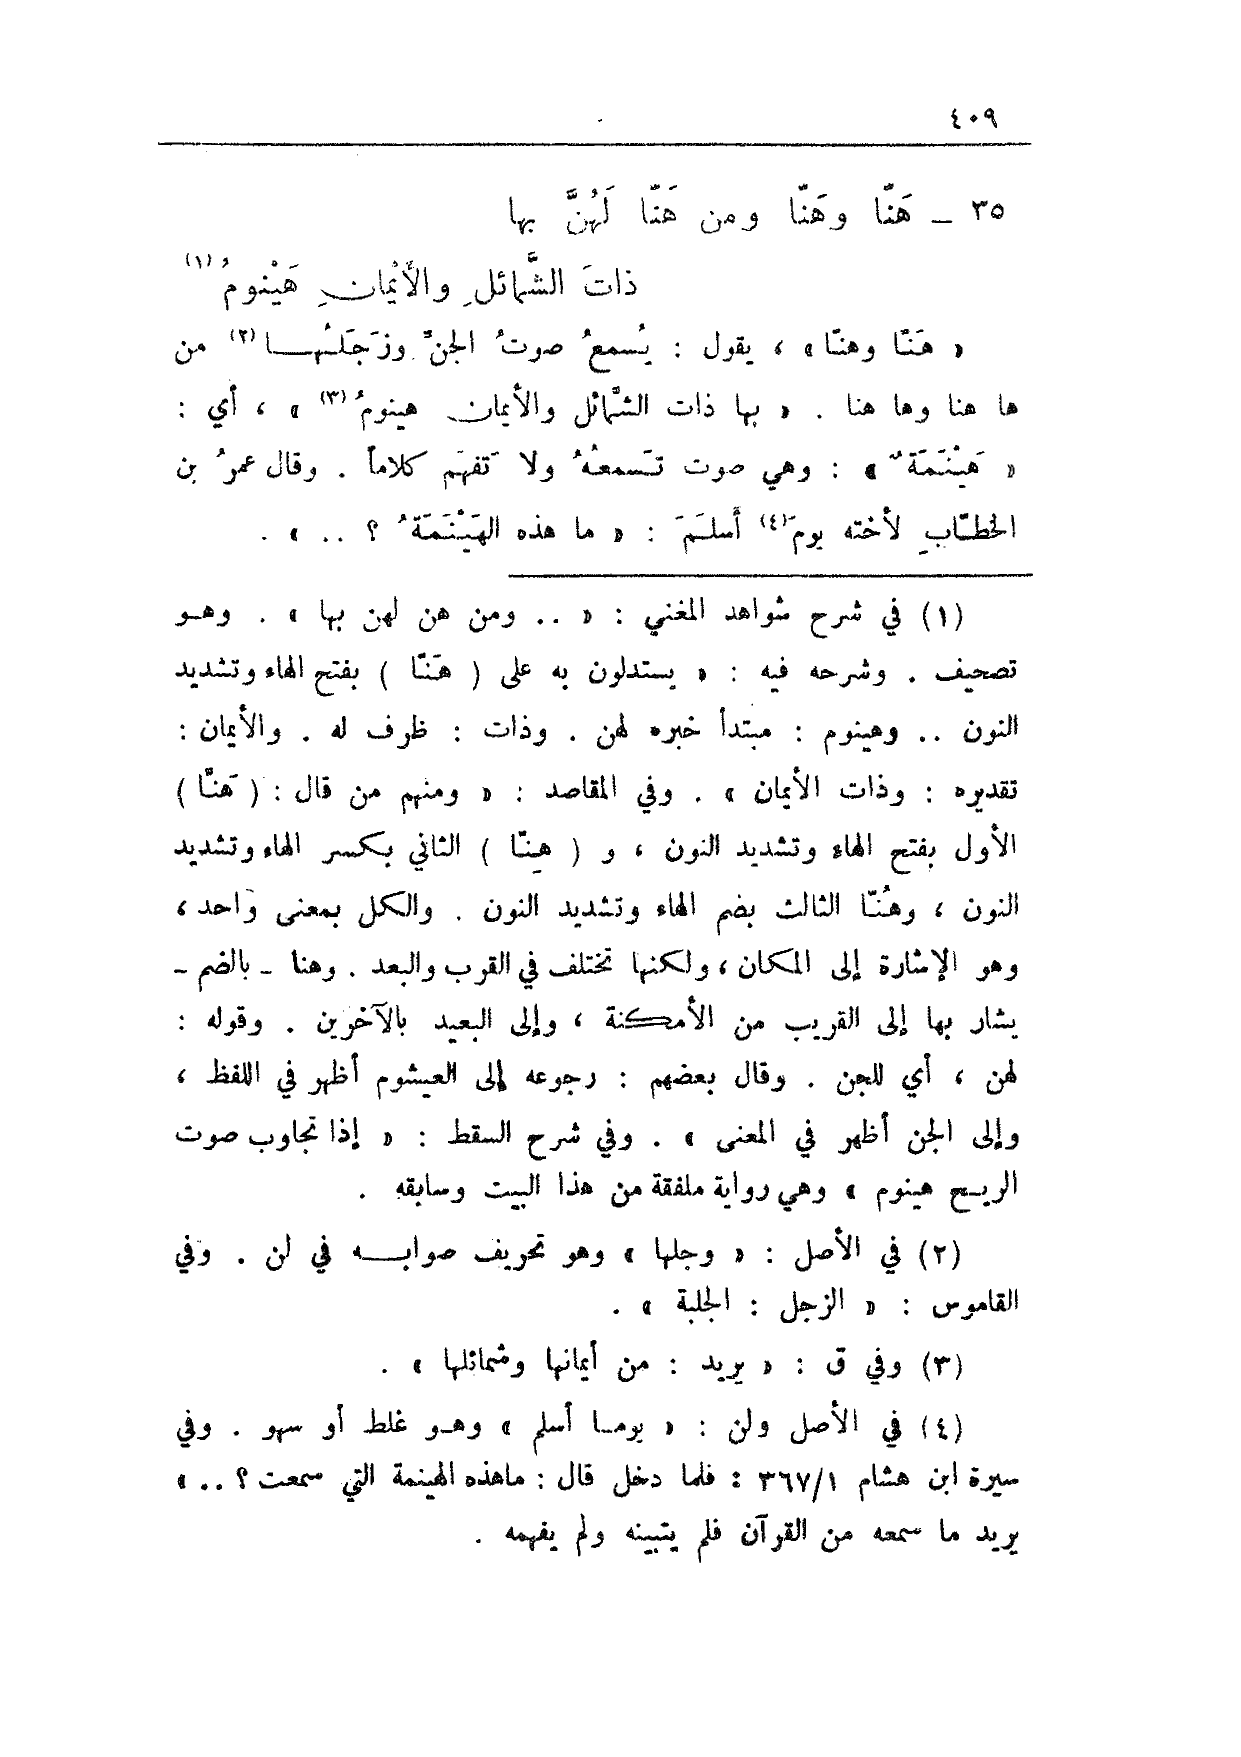 ٤٠٩
٣٥ ـ هَنَّا وهَنَّا ومن هَنَّا لَهُنَّ بها
ذاتَ الشَّمائلِ والأَيْمانِ هَيْنومُ (١)
« هَنَّا وهنّا » ، يقول : يُسمعُ صوتُ الجنِّ وزَجَلُها (٢) من
ها هنا وها هنا . « بها ذات الشَّمائل والأيمان هينومُ (٣) » ، أي :
« هَيْنَمَةٌ » : وهي صوت تَسمعُهُ ولا تَفهَم كلاماً . وقال عمرُ بن
الخطّابِ لأخته يومَ (٤) أَسلَمَ : « ما هذه الهَيْنَمَةُ ؟ .. » .
(١) في شرح شواهد المغني : « .. ومن هن لهن بها » . وهو
تصحيف . وشرحه فيه : « يستدلون به على ( هَنّا ) بفتح الهاء وتشديد
النون .. وهينوم : مبتدأ خبره لهن . وذات : ظرف له . والأيمان :
تقديره : وذات الأيمان » . وفي المقاصد : « ومنهم من قال : ( هَنَّا )
الأول بفتح الهاء وتشديد النون ، و ( هِنّا ) الثاني بكسر الهاء وتشديد
النون ، وهُنّا الثالث بضم الهاء وتشديد النون . والكل بمعنى واحد ،
وهو الإشارة إلى المكان ، ولكنها تختلف في القرب والبعد . وهنا ـ بالضم ـ
يشار بها إلى القريب من الأمكنة ، وإلى البعيد بالآخرين . وقوله :
لهن ، أي للجن . وقال بعضهم : رجوعه إلى العيشوم أظهر في اللفظ ،
وإلى الجن أظهر في المعنى » . وفي شرح السقط : « إذا تجاوب صوت
الريح هينوم » وهي رواية ملفقة من هذا البيت وسابقه .
(٢) في الأصل : « وجلها » وهو تحريف صوابه في لن . وفي
القاموس : « الزجل : الجلبة » .
(٣) وفي ق : « يريد : من أيمانها وشمائلها » .
(٤) في الأصل ولن : « يوما أسلم » وهو غلط أو سهو . وفي
سيرة ابن هشام ٣٦٧/١ : فلما دخل قال : ماهذه الهينمة التي سمعت ؟ .. »
يريد ما سمعه من القرآن فلم يتبينه ولم يفهمه .